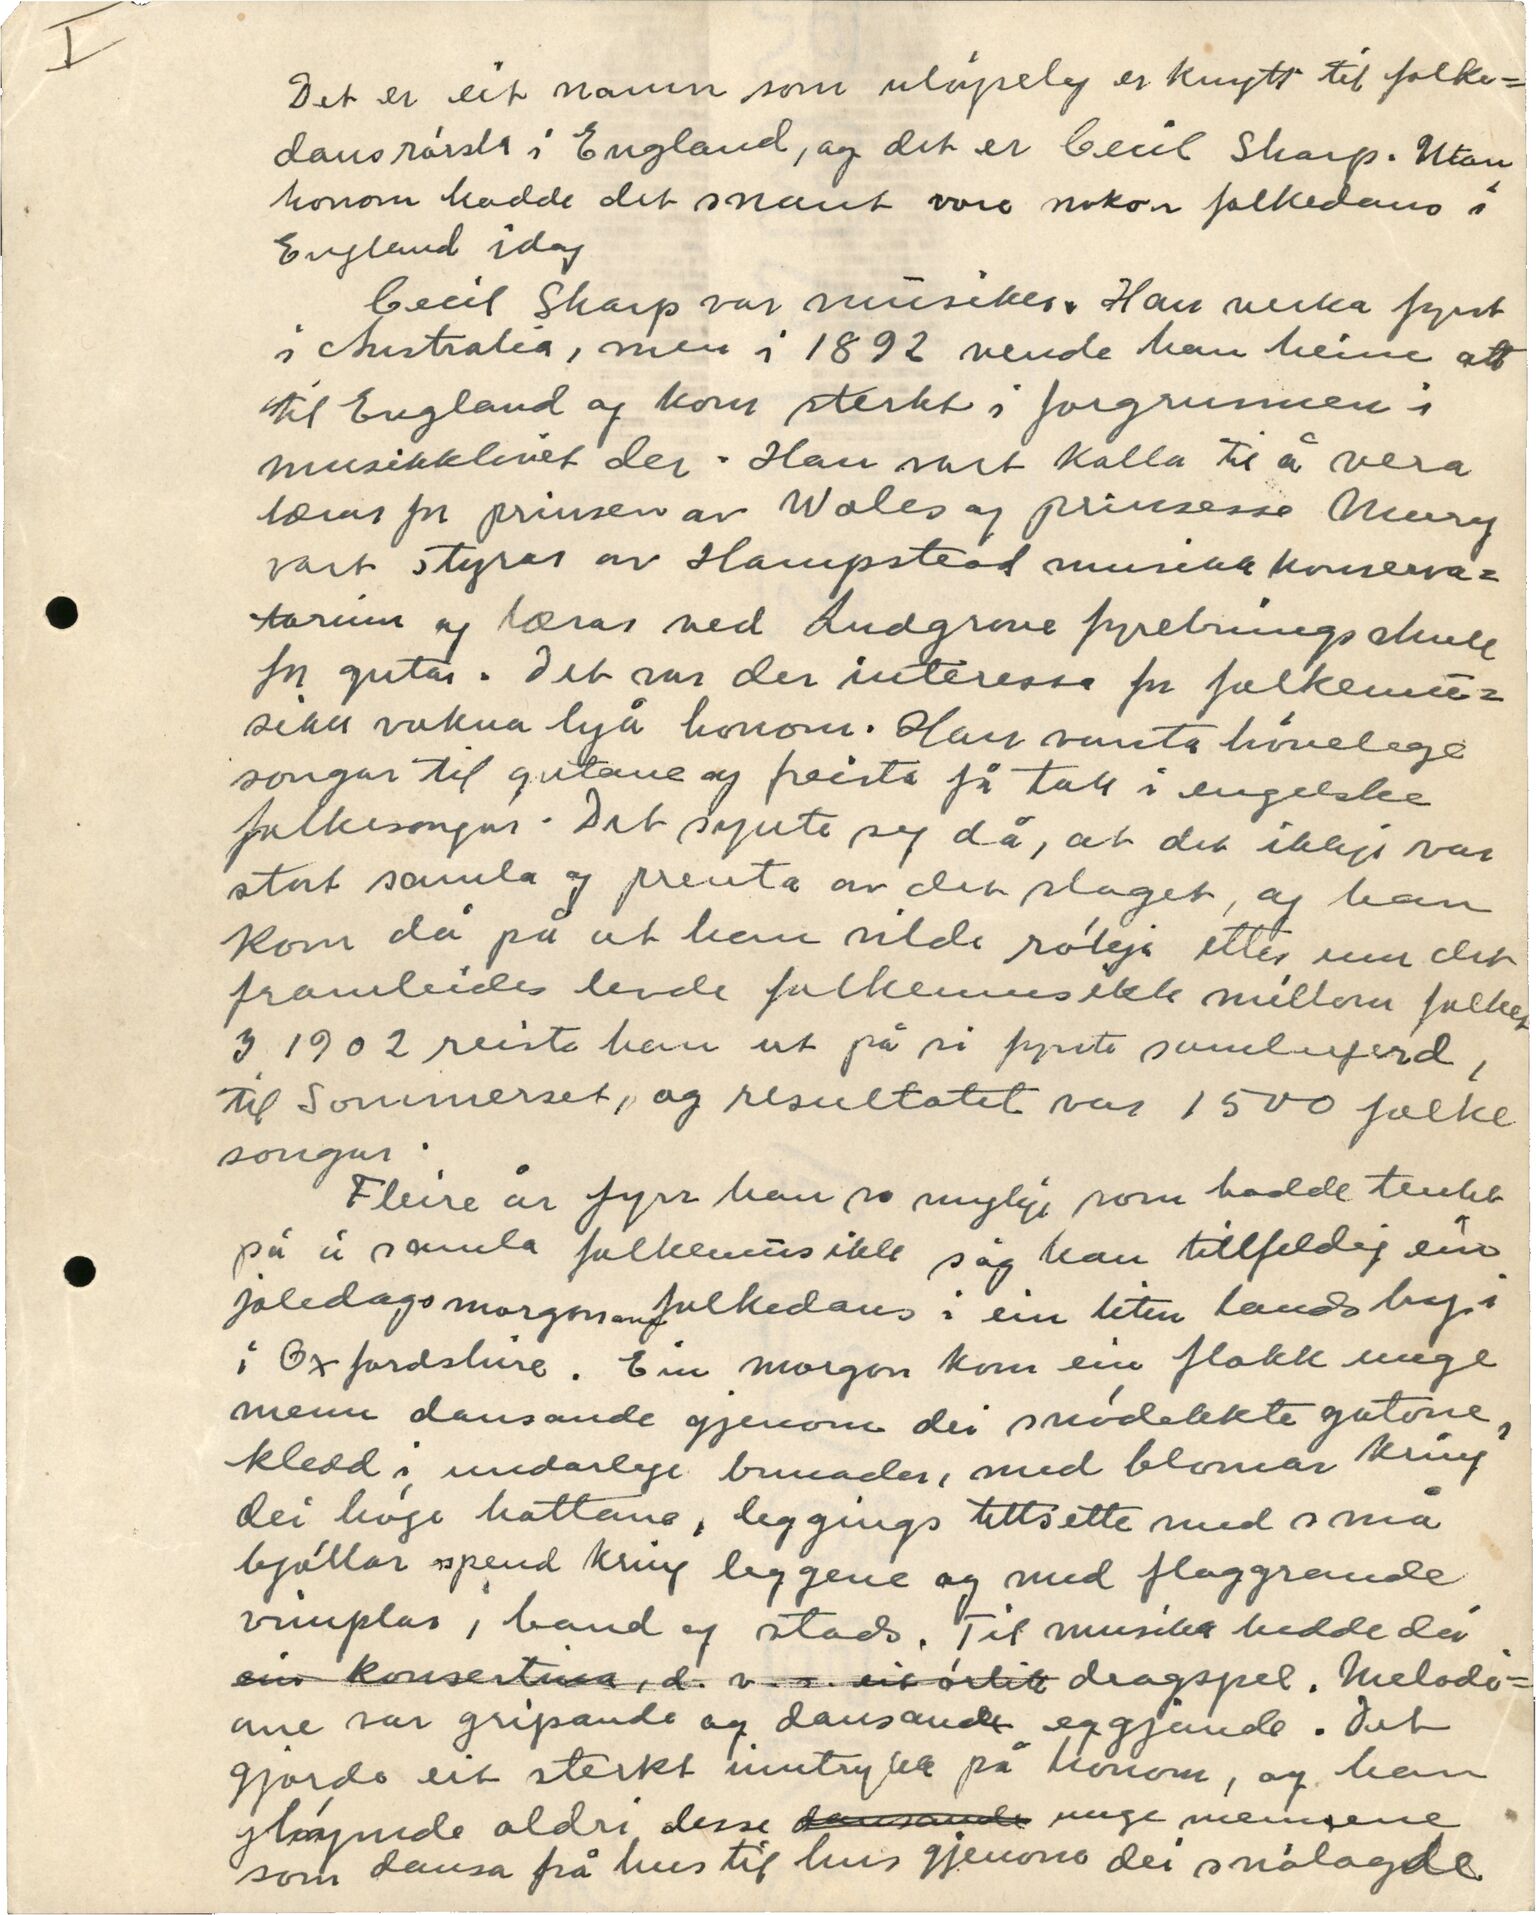 I
Det er eit namn som uløyseleg er knytt til folke=
dansrørsla i England, og det er Cecil Sharp. Utan
honom hadde det snaut vore nokon folkedans i
England idag
Cecil Sharp var musiker. Han verka fyrst
i Australia, men i 1892 vende han heim att
til England og kom sterkt i forgrunnen i
musikklivet der. Han vart kalla til å vera
lærar for prinsen av Wales og prinsesse Mary
vart styrar av Hampstead musikk konserva=
torium og lærar ved Ludgrove fyrebuingsskule
for gutar. Det var der interessa for folkemu=
sikk vakna hjå honom. Han vanta høvelege
songar til gutane og freista få tak i engelske
folkesongar. Det synte seg då, at det ikkje var
stort samla og prenta av det slaget, og han
kom då på at han vilde røkja etter um det
framleides levde folkemusikk millom folket
I 1902 reiste han ut på si fyrste samlarferd,
til Sommerset, og resultatet var 1500 folke
songar.
Fleire år fyrr han so mykje som hadde tenkt
på å samla folkemusikk såg han tilfeldig ein
joledagsmorgon folkedans i ein liten landsby i
i Oxfordshire. Ein morgon kom ein flokk unge
menn dansande gjenom dei snødekkte gatone,
kledd i underlege bunader, med blomar kring
dei høge hattane, leggings tettsette med små
bjøllor spend kring leggene og med flaggrande
vimplar, band og stads. Til musikk hadde dei
ein konsertina, d. v. s. eit ørlite dragspel. Melodi=
ane var gripande og dansande eggjande. Det
gjorde eit sterkt inntrykk på honom, og han
gløymde aldri desse dansande unge mennene
som dansa frå hus til hus gjenom dei snølagde